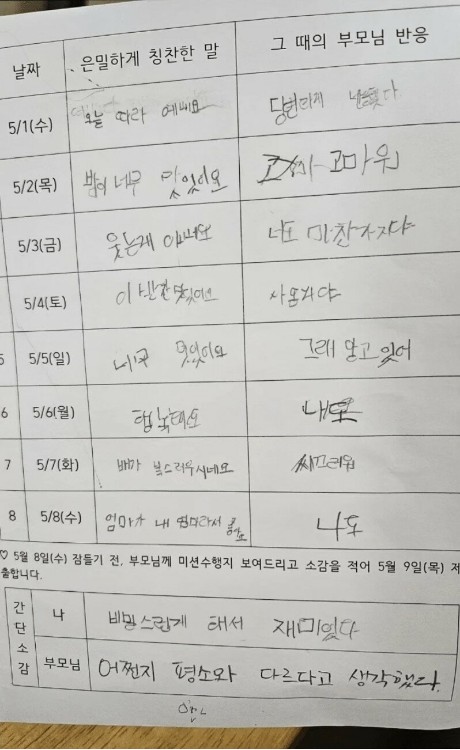 날짜 은밀하게 칭찬한 말 그 때의 부모님 반응
5/1(수) 오늘 따라 예뻐요 당연하지
5/2(목) 밥이 너무 맛있어요 고마워
5/3(금) 웃는게 이뻐요 너도 마찬가지야
5/4(토) 이 반찬 맛있어요
5 5/5(일) 너무 멋있어요 그래 알고 있어
6 5/6(월) 행복해요 나도
7 5/7(화) 배가 볼스러우시네요 씨끄러워
8 5/8(수) 엄마가 내 엄마라서 좋아요 나도
♡ 5월 8일(수) 잠들기 전, 부모님께 미션수행지 보여드리고 소감을 적어 5월 9일(목) 제
출합니다.
간단소감
나 비밀스럽게 해서 재미있다
부모님 어쩐지 평소와 다르다고 생각했다.